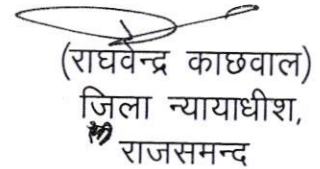 (राघवेन्द्र काछवाल)
जिला न्यायाधीश,
राजसमन्द